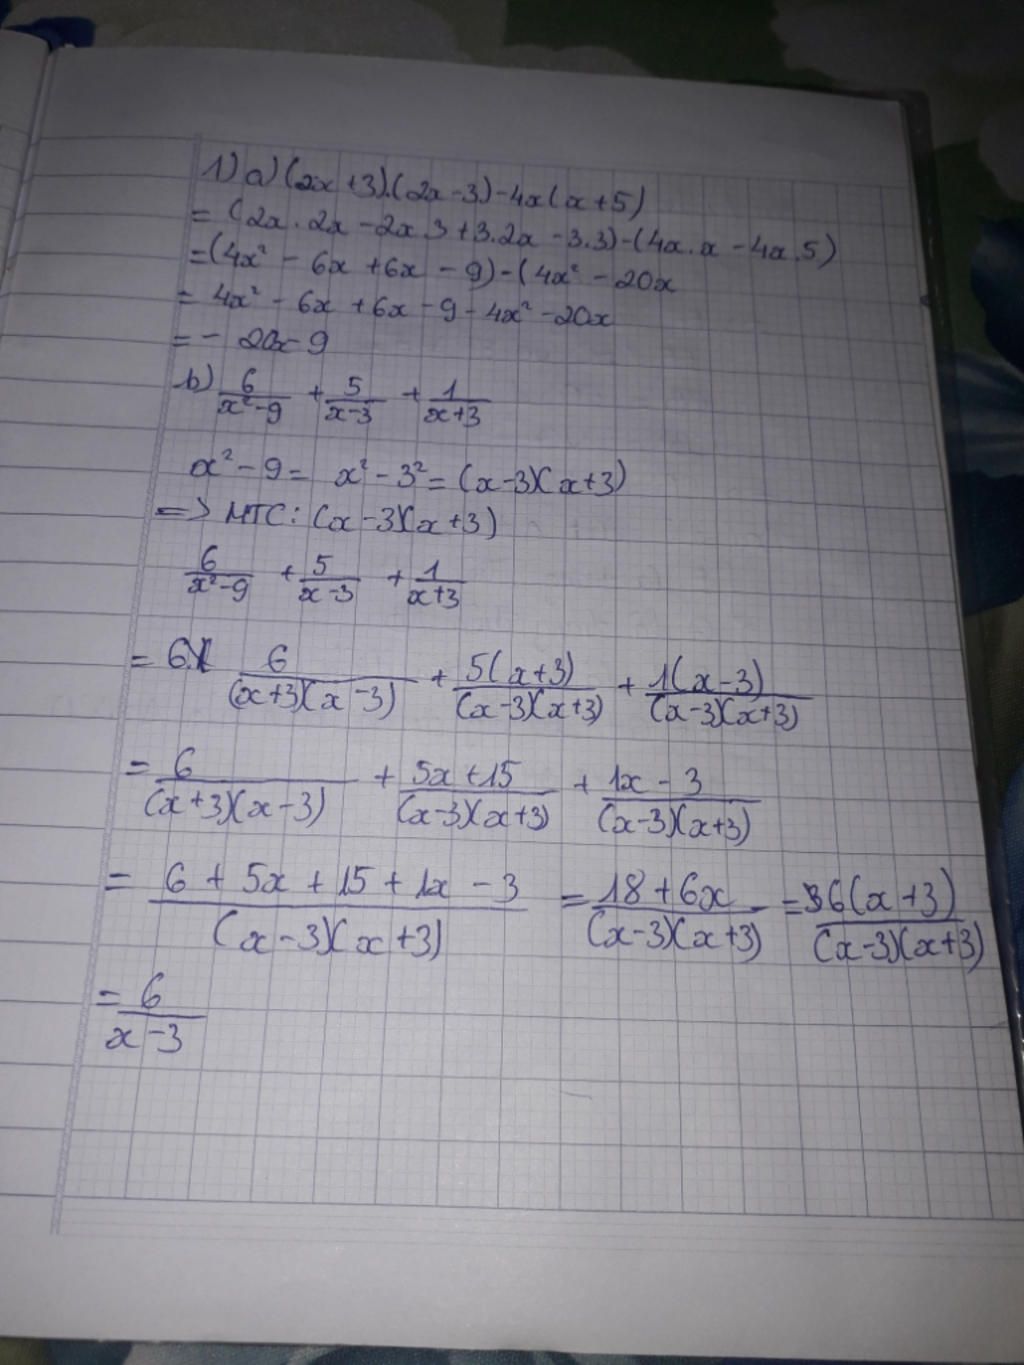 1) a) (2x + 3).(2x - 3) - 4x(x + 5)
= (2x . 2x - 2x 3 + 3 . 2x - 3 . 3) - (4x . x - 4x . 5)
= (4x² - 6x + 6x - 9) - (4x² - 20x
= 4x² - 6x + 6x - 9 - 4x² - 20x
= - 20x - 9
b) 6/(x² - 9) + 5/(x - 3) + 1/(x + 3)
x² - 9 = x² - 3² = (x - 3)(x + 3)
=> MTC: (x - 3)(x + 3)
6/(x² - 9) + 5/(x - 3) + 1/(x + 3)
= 6 6/((x + 3)(x - 3)) + 5(x + 3)/((x - 3)(x + 3)) + 1(x - 3)/((x - 3)(x + 3))
= 6/((x + 3)(x - 3)) + (5x + 15)/((x - 3)(x + 3)) + (1x - 3)/((x - 3)(x + 3))
= (6 + 5x + 15 + 1x - 3)/((x - 3)(x + 3)) = (18 + 6x)/((x - 3)(x + 3)) = 6(x + 3)/((x - 3)(x + 3))
= 6/(x - 3)